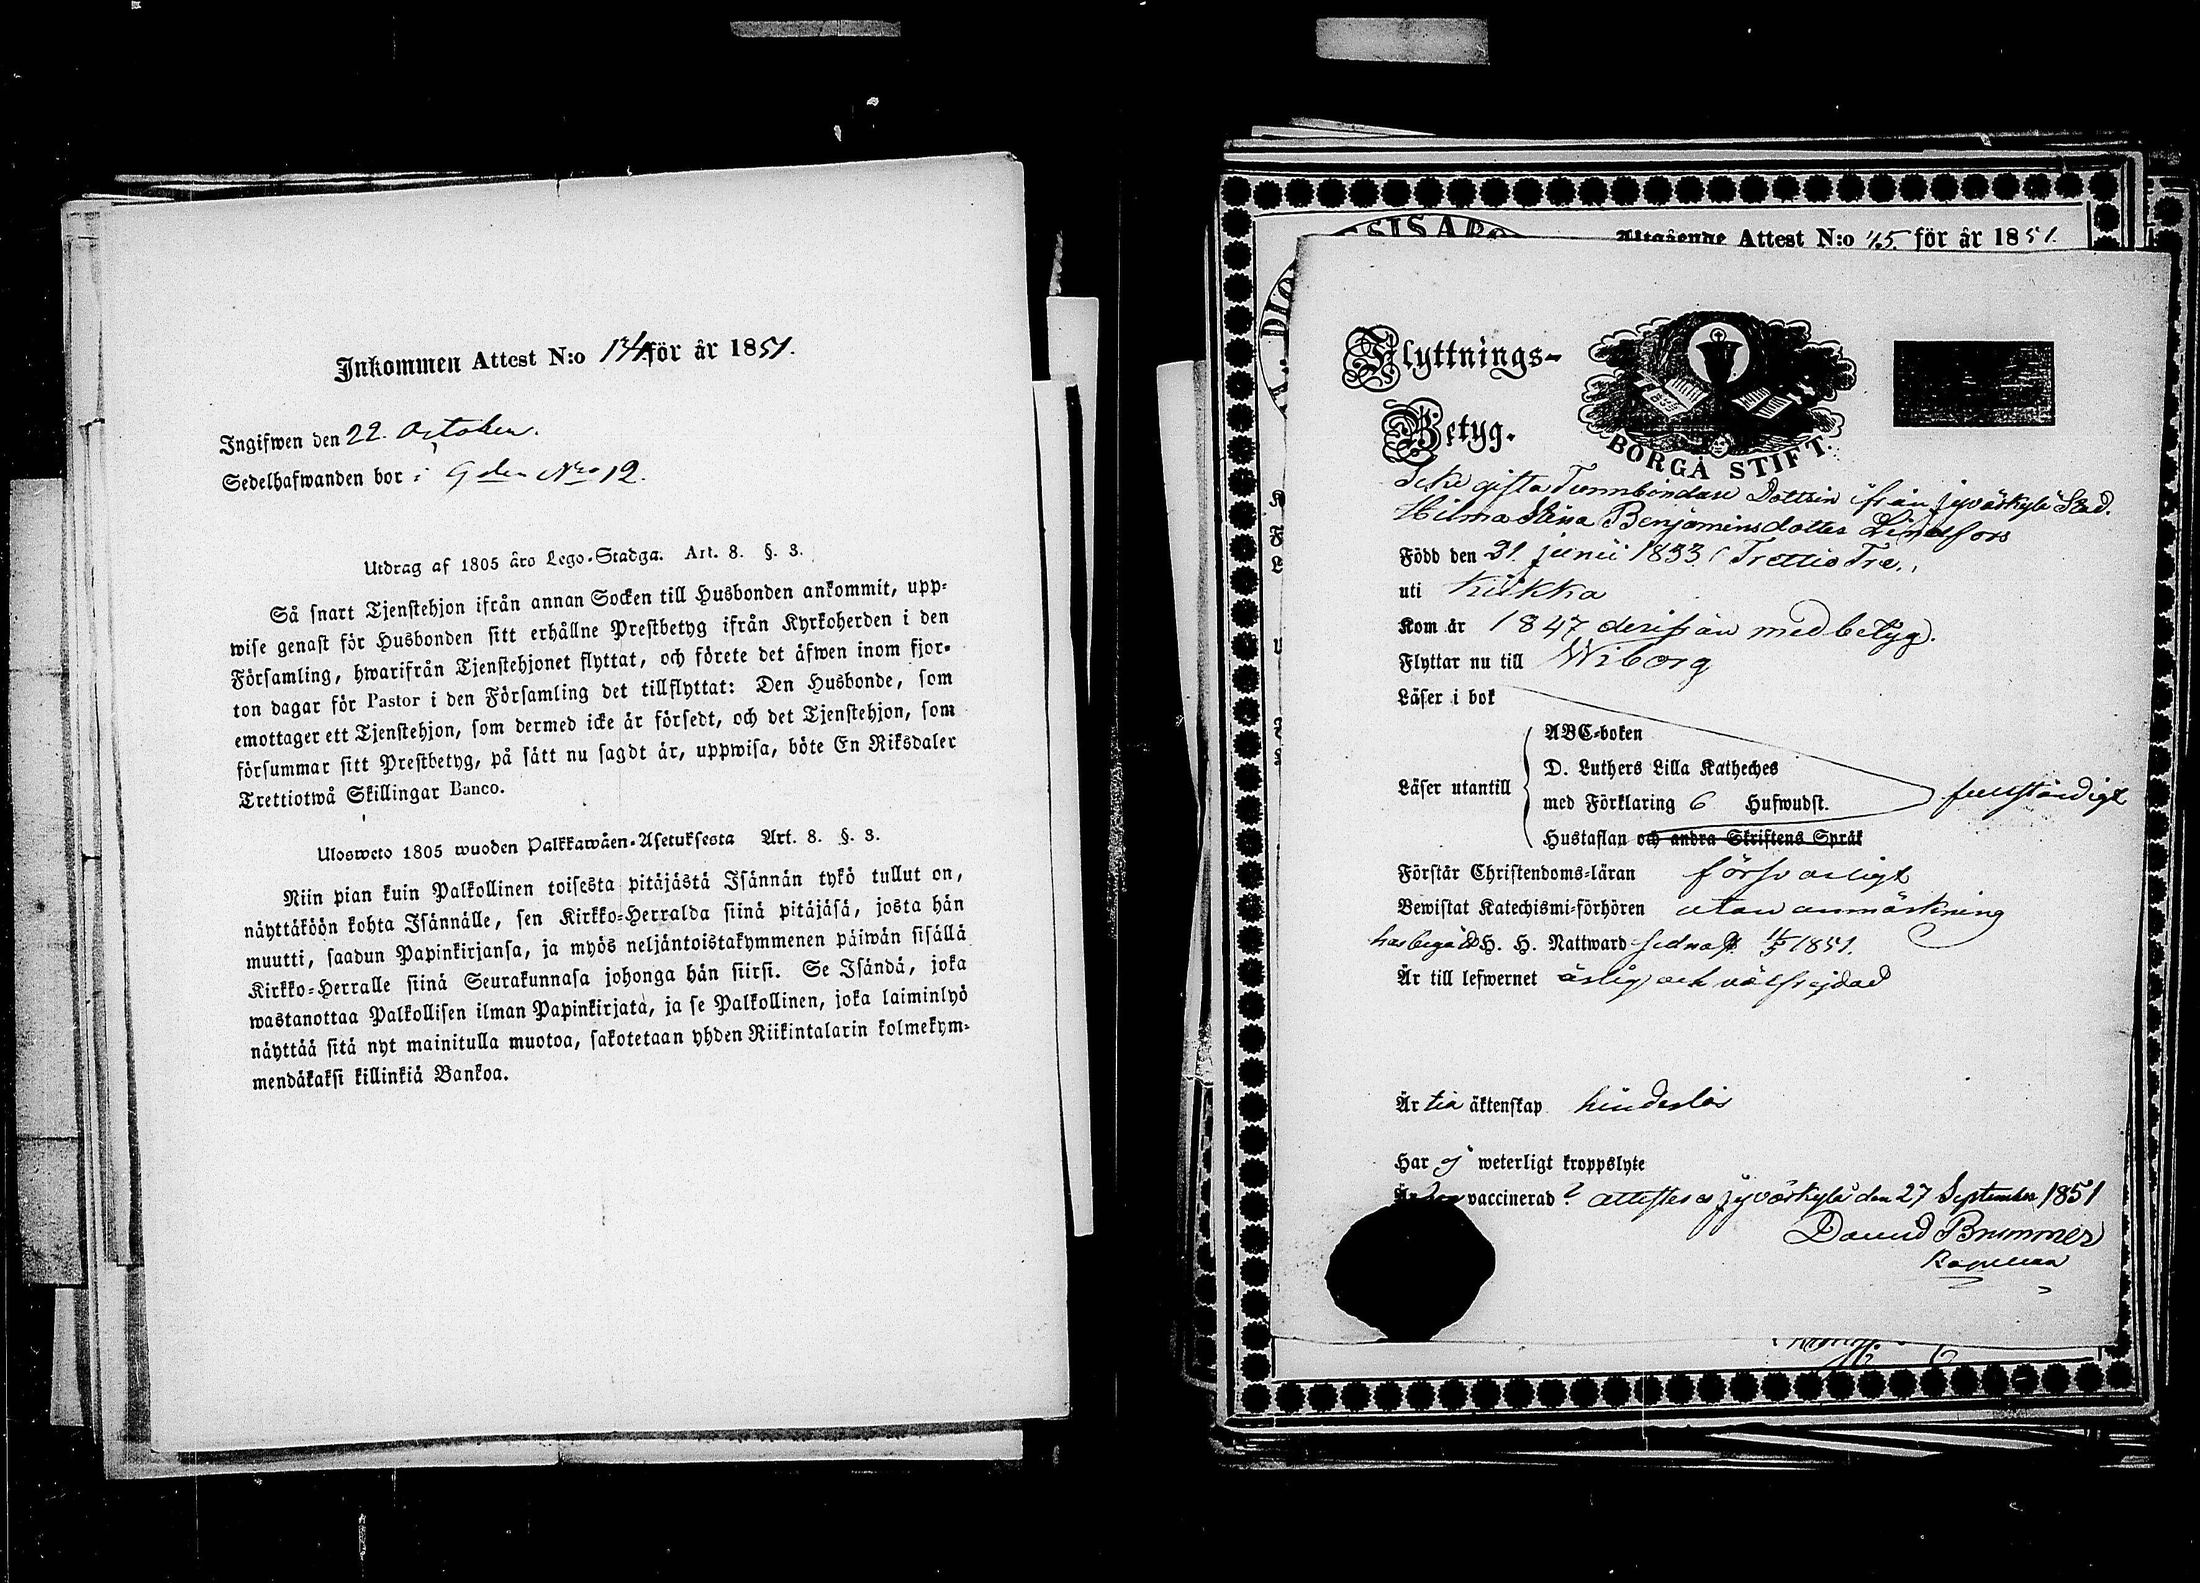 Inkommen Attest N:o 134 för år 1851.
Ingifwen den 22. October.
Sedelhafwanden bor i Gden Nro 12.
Utdrag af 1805 års Lego-Stadga. Art. 8. §. 3.
Så snart Tjenstehjon ifrån annan Socken till Husbonden ankommit, upp-
wise genast för Husbonden sitt erhållne Prestbetyg ifrån Kyrkoherden i den
Församling, hwarifrån Tjenstehjonet flyttat, och förete det äfwen inom fjor-
ton dagar för Pastor i den Församling det tillflyttat: Den Husbonde, som
emottager ett Tjenstehjon, som dermed icke är försedt, och det Tjenstehjon, som
försummar sitt Prestbetyg, på sätt nu sagdt är, uppwisa, böte En Riksdaler
Trettiotwå Skillingar Banco.
Ulosweto 1805 wuoden Palkkawäen-Asetuksesta Art. 8. §. 3.
Niin pian kuin Palkollinen toisesta pitäjästä Isännän tykö tullut on,
näyttäköön kohta Isännälle, sen Kirkko-Herralda siinä pitäjäsä, josta hän
muutti, saadun Papinkirjansa, ja myös neljäntoistakymmenen päiwän sisällä
Kirkko-Herralle siinä Seurakunnasa johonga hän siirsi. Se Isändä, joka
wastanottaa Palkollisen ilman Papinkirjata, ja se Palkollinen, joka laiminlyö
näyttää sitä nyt mainitulla muotoa, sakotetaan yhden Riikintalarin kolmekym-
mendäkaksi killinkiä Bankoa.
Attest N:o 45. för år 1851.
Flyttnings-
Betyg.
BORGÅ STIFT.
Icke gifta Tunnbindare Dottren ifrån Jyväskylä Stad.
Hilma Stina Benjaminsdotter Lindfors
Född den 21 junii 1833 (Trettio Tre.,
uti Kukka
Kom år 1847 derifrån med betyg.
Flyttar nu till Wiborg
Läser i bok
ABC-boken
D. Luthers Lilla Katheches
Läser utantill med Förklaring 6 Hufwudst. fullständigt
Hustaflan och andra Skriftens Språk
Förstår Christendoms-läran försvarligt
Bewistat Katechismi-förhören utan anmärkning
har begådt H. H. Nattward sednast 1851.
Är till lefwernet ärlig och välfrejdad
Är till äktenskap hinderlös
Har ej weterligt kroppslyte
Är vaccinerad? attesteras Jyväskylä den 27 September 1851
David Brummer
Kapellan